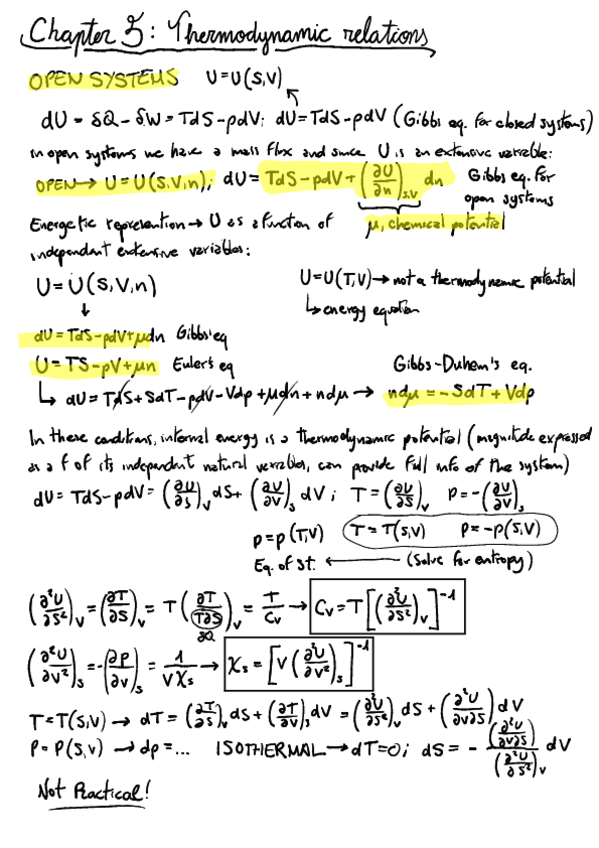 Chapter 5: Thermodynamic relations
OPEN SYSTEMS U=U(S,V)
dU = δQ - δW = TdS - pdV; dU = TdS - pdV (Gibbs eq. for closed systems)
In open systems we have a mass flux and since U is an extensive variable:
OPEN → U = U(S,V,n); dU = TdS - pdV + (∂U/∂n)_{S,V} dn Gibbs eq. for
open systems
μ, chemical potential
Energetic represention → U as a function of
independent extensive variables:
U = U(S,V,n) U = U(T,V) → not a thermodynamic potential
↓ ↳ energy equation
dU = TdS - pdV + μdn Gibbs' eq
U = TS - pV + μn Euler's eq Gibbs-Duhem's eq.
↳ dU = TdS + SdT - pdV - Vdp + μdn + ndμ → ndμ = -SdT + Vdp
In these conditions, internal energy is a thermodynamic potential (magnitude expressed
as a f of its independent natural variables, can provide full info of the system)
dU = TdS - pdV = (∂U/∂S)_V dS + (∂U/∂V)_S dV; T = (∂U/∂S)_V p = -(∂U/∂V)_S
p = p(T,V) T = T(S,V) p = -p(S,V)
Eq. of St. ← (Solve for entropy)
(∂²U/∂S²)_V = (∂T/∂S)_V = T(∂T/T∂S)_V = T/C_V → C_V = T[(∂²U/∂S²)_V]^-1
∂Q
(∂²U/∂V²)_S = -(∂p/∂V)_S = 1/(VX_S) → X_S = [V(∂²U/∂V²)_S]^-1
T = T(S,V) → dT = (∂T/∂S)_V dS + (∂T/∂V)_S dV = (∂²U/∂S²)_V dS + (∂²U/∂V∂S) dV
P = P(S,V) → dp = ... ISOTHERMAL → dT = 0; dS = - (∂²U/∂V∂S)/(∂²U/∂S²)_V dV
Not Practical!